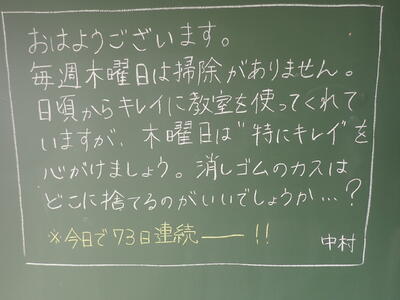 おはようございます。
毎週木曜日は掃除がありません。
日頃からキレイに教室を使ってくれて
いますが、木曜日は"特にキレイ"を
心がけましょう。消しゴムのカスは
どこに捨てるのがいいでしょうか…？
※今日で73日連続――!!
中村